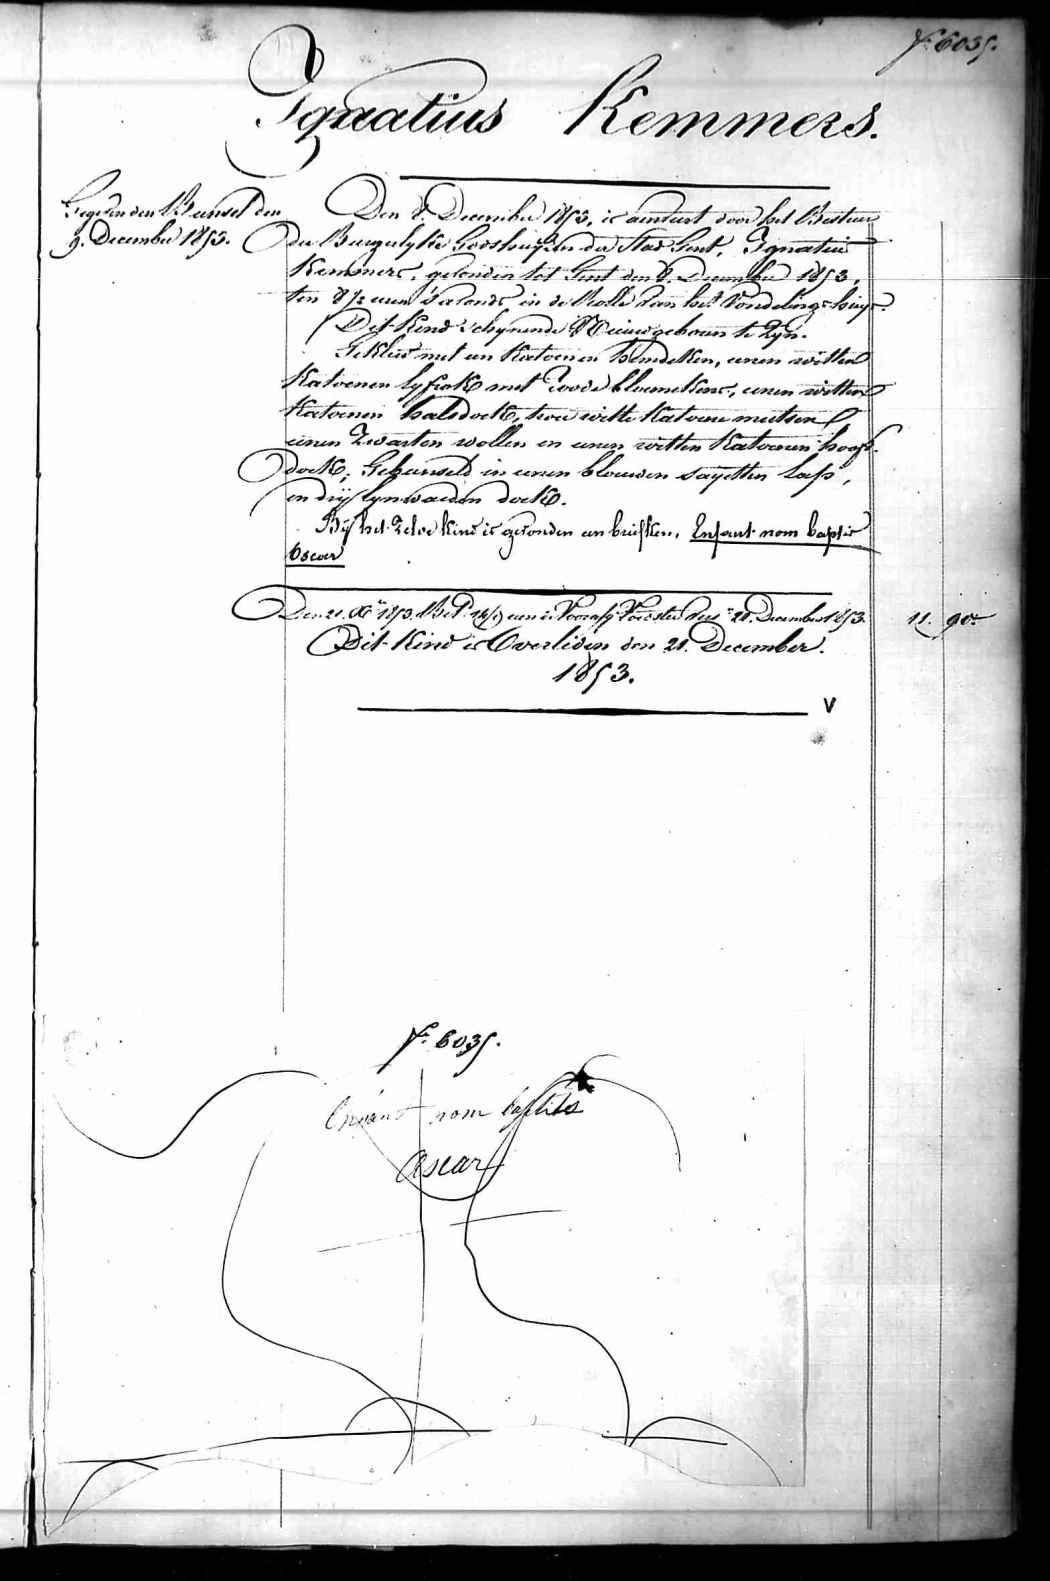 Nº 6035.
Ignatius Kemmers.
Gegeven den Bunsel den
9. December 1853.
Den 8. December 1853, is aenveert door het Bestuer
der Burgerlyke Godshuyzen der Stad Gent, Ignatius
Kemmers, gevonden tot Gent den 8. December 1853,
ten 8 1/2 uren 's avonds in de Rolle van het Vondelingshuys.
Dit Kind schynende Nieuwgeboren te Zyn.
Gekleed met een Katoenen hemdeken, eenen witten
Katoenen lyfrok met roode bloemekens, eenen witten
Katoenen halsdoek, twee witte Katoene mutsen
eenen Zwarten wollen en eenen witten Katoenen hoofd-
doek; Gebunseld in eenen blauwen sayetten Lap,
en dry lynwaeden doek.
By het Zelve kind is gevonden een briefken, Enfant nom baptisé
Oscar
Den 21. Xbr 1853. 21. December 1853. 11. 90
Dit Kind is Overleden den 21. December.
1853.
V
Nº 6035.
Enfant nom baptisé
Oscar